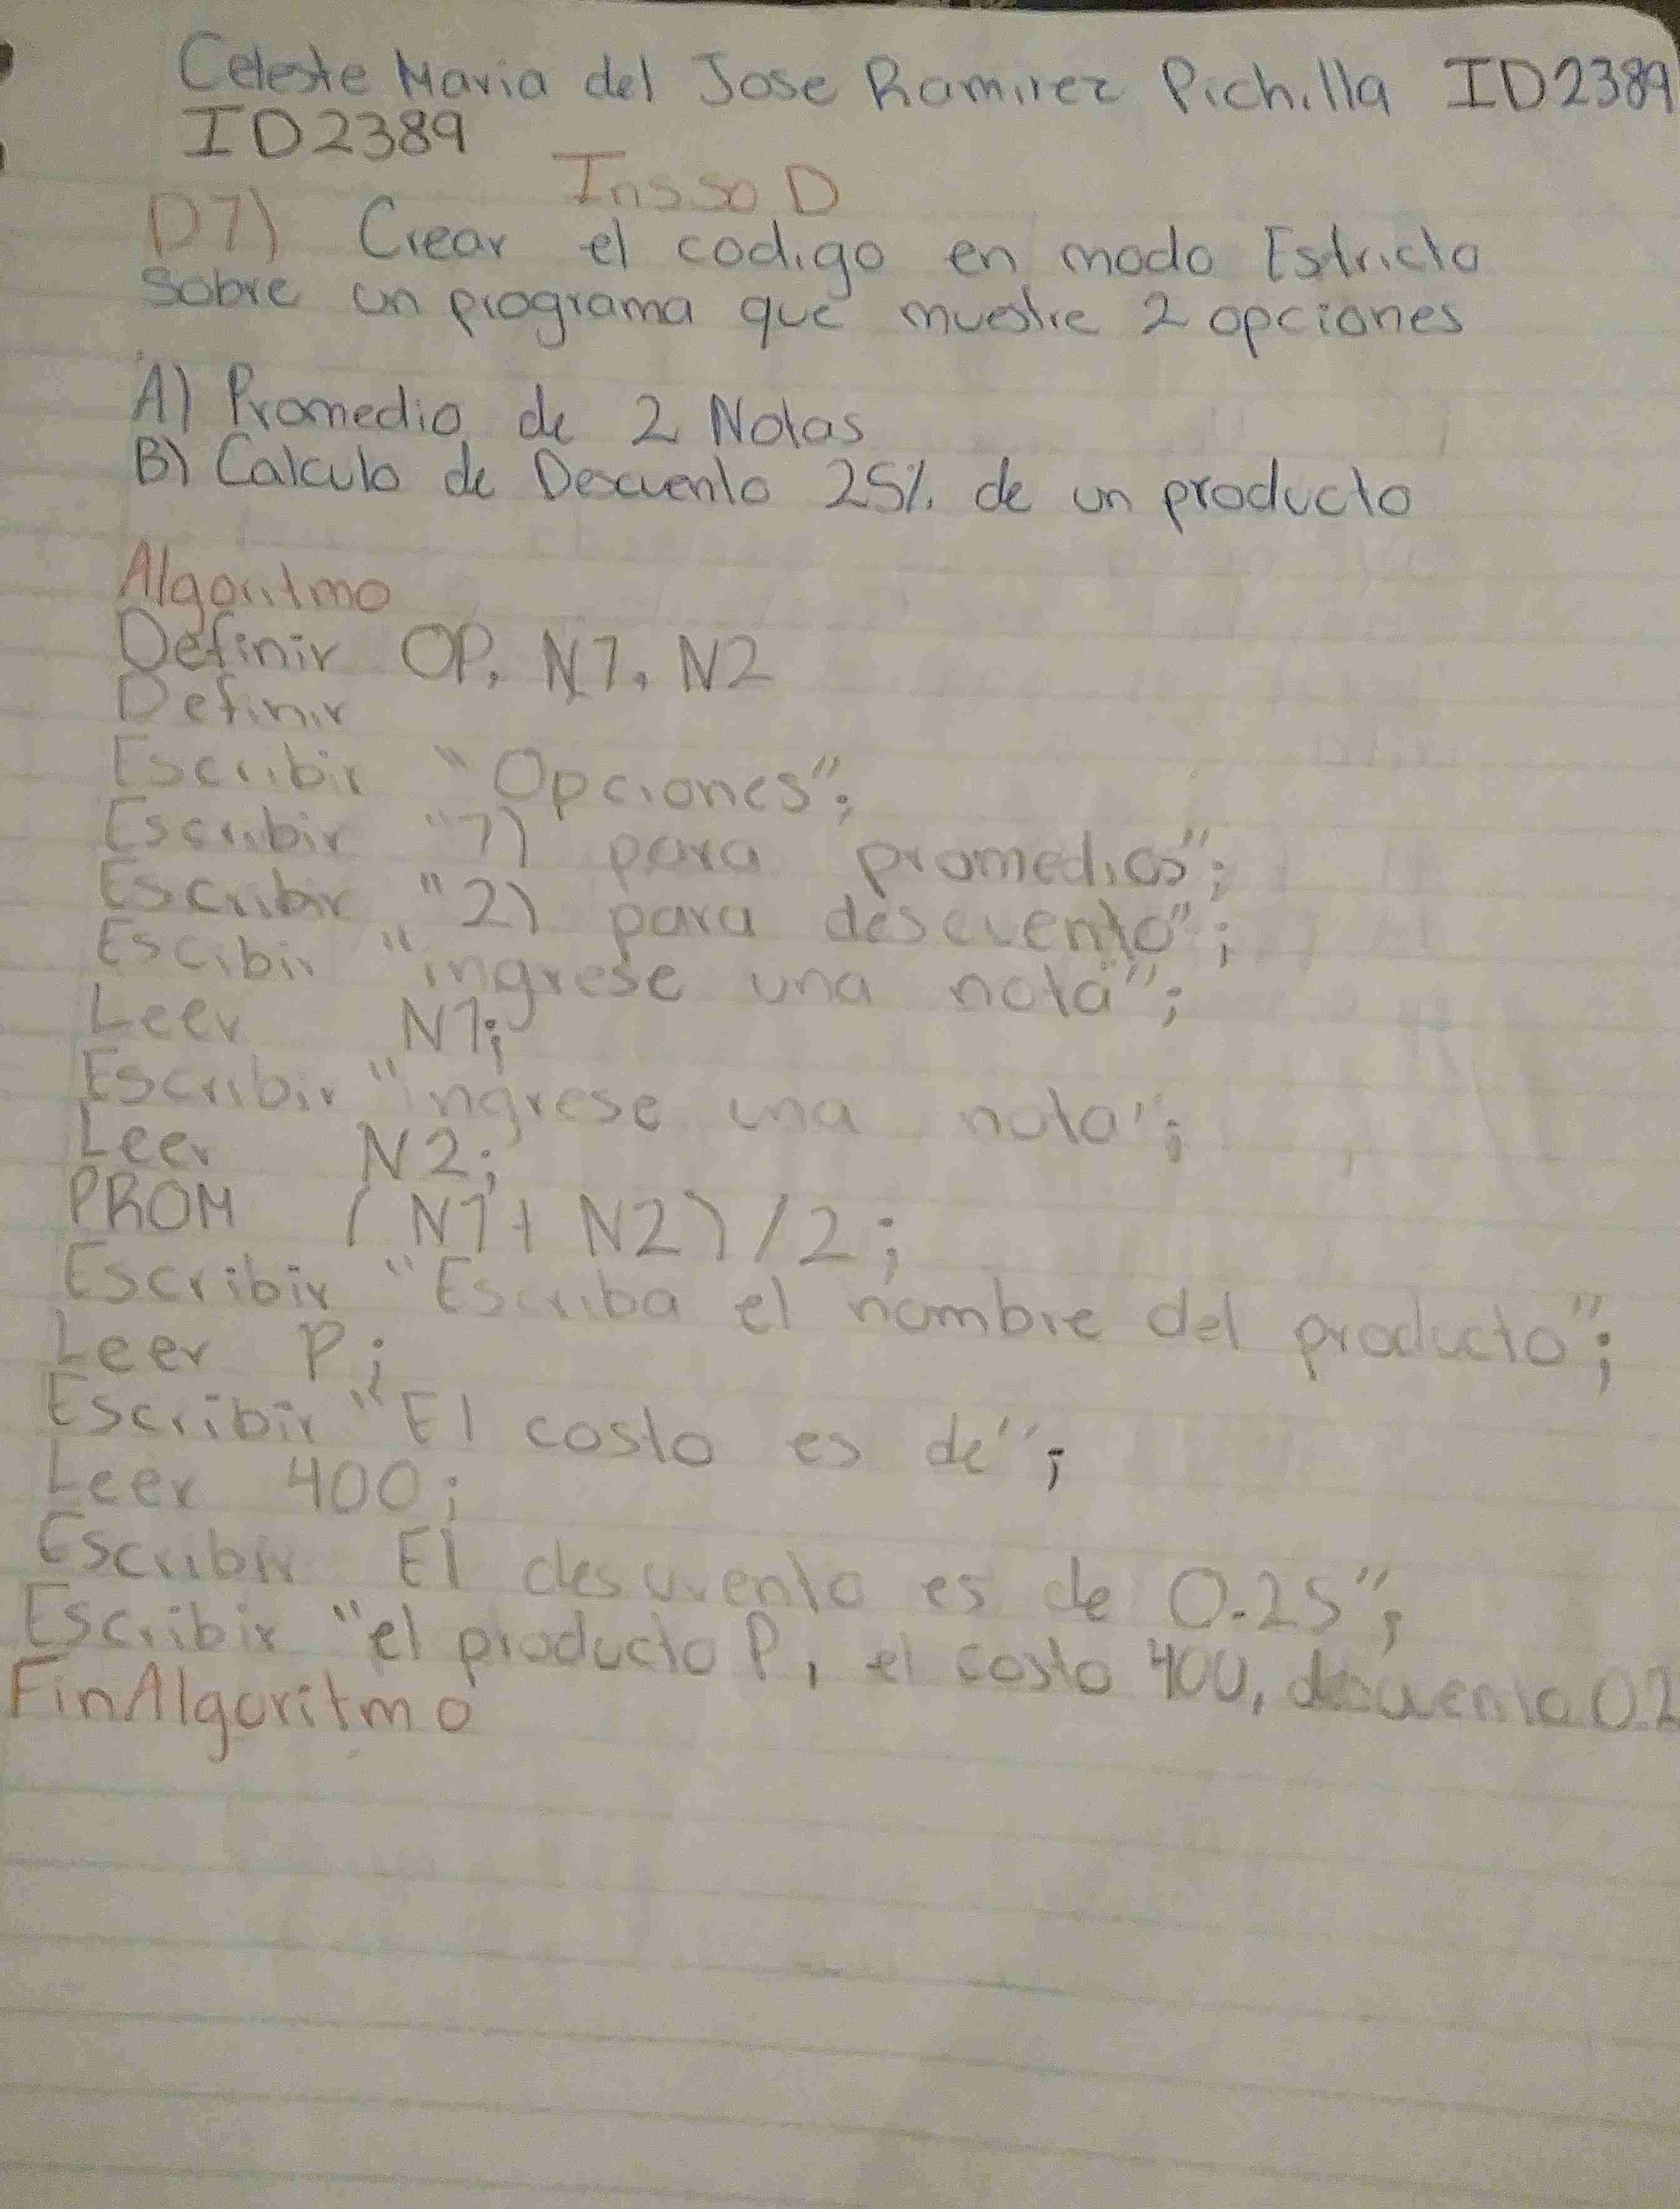 Celeste Maria del Jose Ramirez Pichilla ID2389
ID2389
Insso D
D7) Crear el codigo en modo Estricto
sobre un programa que muestre 2 opciones
A) Promedio de 2 Notas
B) Calculo de Descuento 25% de un producto
Algoritmo
Definir OP, N1, N2
Definir
Escribir "Opciones";
Escribir "1) para promedios";
Escribir "2) para descuento";
Escibir "ingrese una nota";
Leer N1;
Escribir "ingrese una nota";
Leer N2;
PROM (N1+ N2)/2;
Escribir "Escriba el nombre del producto";
Leer P;
Escribir "El costo es de";
Leer 400;
Escribir El descuento es de 0.25";
Escribir "el producto P, el costo 400, descuento 0.2
FinAlgoritmo